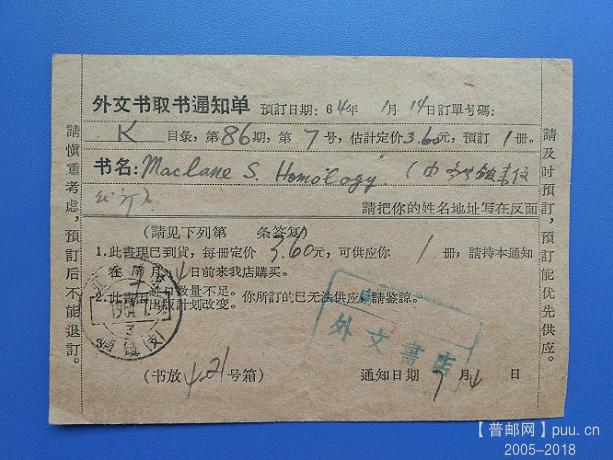 外文书取书通知单 預訂日期：64年 1月 14日訂單号碼：
K 目录，第86期，第7号，估計定价3.60元，預訂1册。
书名：Maclane S. Homology.
請把你的姓名地址写在反面
(請見下列第 条答复)
1.此書現巳到貨，每册定价3.60元，可供应你1册；請持本通知
在 月 4日前來我店購买。
2.此書 数量不足。你所訂的巳无法供应，請鉴諒。
出版計划改变。
(书放421号箱) 通知日期 7月4日
請慎重考慮，預訂后不能退訂。
請及时預訂，預訂能优先供应。
外文書店
【普邮网】puu.cn
2005-2018